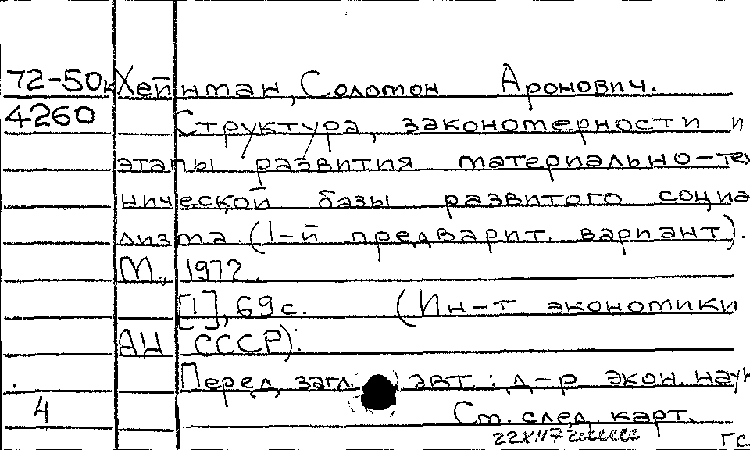 72-50к Хейнман, Соломон Аронович.
4260 Структура, закономерности и
этапы развития материально-тех
нической базы развитого социа
лизма. (1-й предварит. вариант).
М., 1972.
[1], 69 с. (Ин-т экономики
АН СССР).
Перед загл. авт.: д-р экон. наук
4 См. след. карт.
ГС